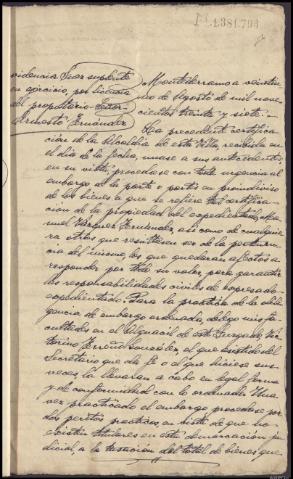 1.1.381.793
Providencia Juez suplente
en ejercicio, por licencia
del propietario Señor
Armesto Fernández
Montederramo a veintiuno
de Agosto de mil novecientos
treinta y siete.
La precedente certificación
de la Alcaldía de esta Villa, recibida en
el día de la fecha, unase a sus antecedentes
en su vista, procedase con toda urgencia al
embargo de la parte o partes en proindiviso
de los bienes a que se refiere la certificación
de la propiedad del expedientado, Manuel
Vázquez Fernández, así como de cualquiera
otros que resulten ser de la pertenencia
del mismo, los que quedarán afectos a
responder por todo su valor, para garantir
las responsabilidades civiles de expresado
expedientado. Para la práctica de la diligencia
de embargo ordenada, delego mis facultades
en el Alguacil de este Juzgado
que asistido del
Secretario que da fe o el que hiciese sus
veces, la llevarán a cabo en legal forma
y de conformidad con lo ordenado. Una
vez practicado el embargo procedase por
dos peritos practicos, en vista de que no
existen titulares en esta demarcación judicial,
a la tasación del total de bienes que